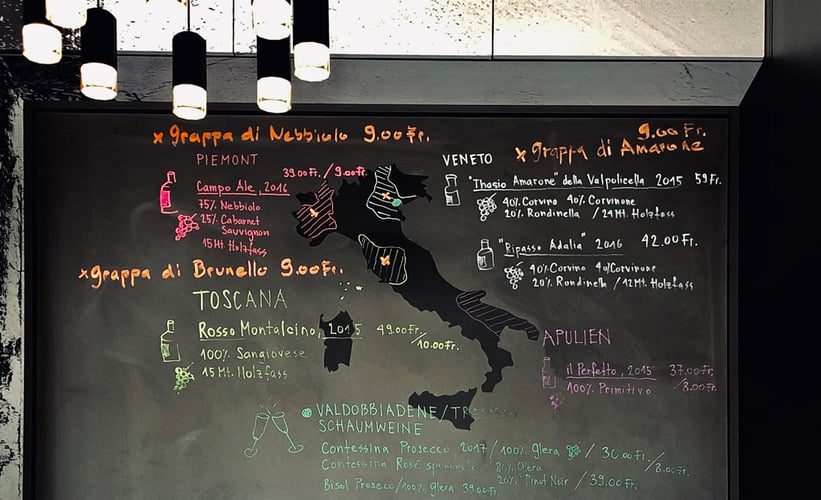 x grappa di Nebbiolo 9.00 Fr.
PIEMONT
39.00 Fr. / 9.00 Fr.
Campo Ale, 2016
75% Nebbiolo
25% Cabernet
Sauvignon
15 Mt. Holzfass
9.00 Fr.
x grappa di Amarone
VENETO
"Thasio Amarone" della Valpolicella 2015 59 Fr.
40% Corvino 40% Corvinone
20% Rondinella / 24 Mt. Holzfass
"Ripasso Adalia" 2016 42.00 Fr.
40% Corvino 40% Corvinone
20% Rondinella / 12 Mt. Holzfass
x grappa di Brunello 9.00 Fr.
TOSCANA
Rosso Montalcino, 2015 49.00 Fr. / 10.00 Fr.
100% Sangiovese
15 Mt. Holzfass
APULIEN
il Perfetto, 2015 37.00 Fr. / 8.00 Fr.
100% Primitivo
VALDOBBIADENE/
SCHAUMWEINE
Contessina Prosecco, 2017 / 100% Glera / 36.00 Fr. / 8.00 Fr.
Contessina Rosé spumante 80% Glera
20% Pinot Noir / 39.00 Fr.
Bisol Proseco / 100% glera 39.00 Fr.